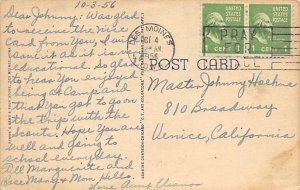 10-3-56
Dear Johnny: Was glad
to receive the nice
card from you, Aunt
Dan't it at is
educational. So glad
to hear you enjoyed
being at Camp and
that you got to go on
the trips with the
scouts. Hope you are
well and going to
school every day.
Tell Marguerite and
Rose Mary & Mom Hello.
Love Aunt Eleanor
DES MOINES
OCT 4
AM
1956
PRAY
UNITED STATES
POSTAGE
1 CENT 1
UNITED STATES
POSTAGE
1 CENT 1
POST CARD
Master Johnny Hoehne
810 Broadway
Venice, California